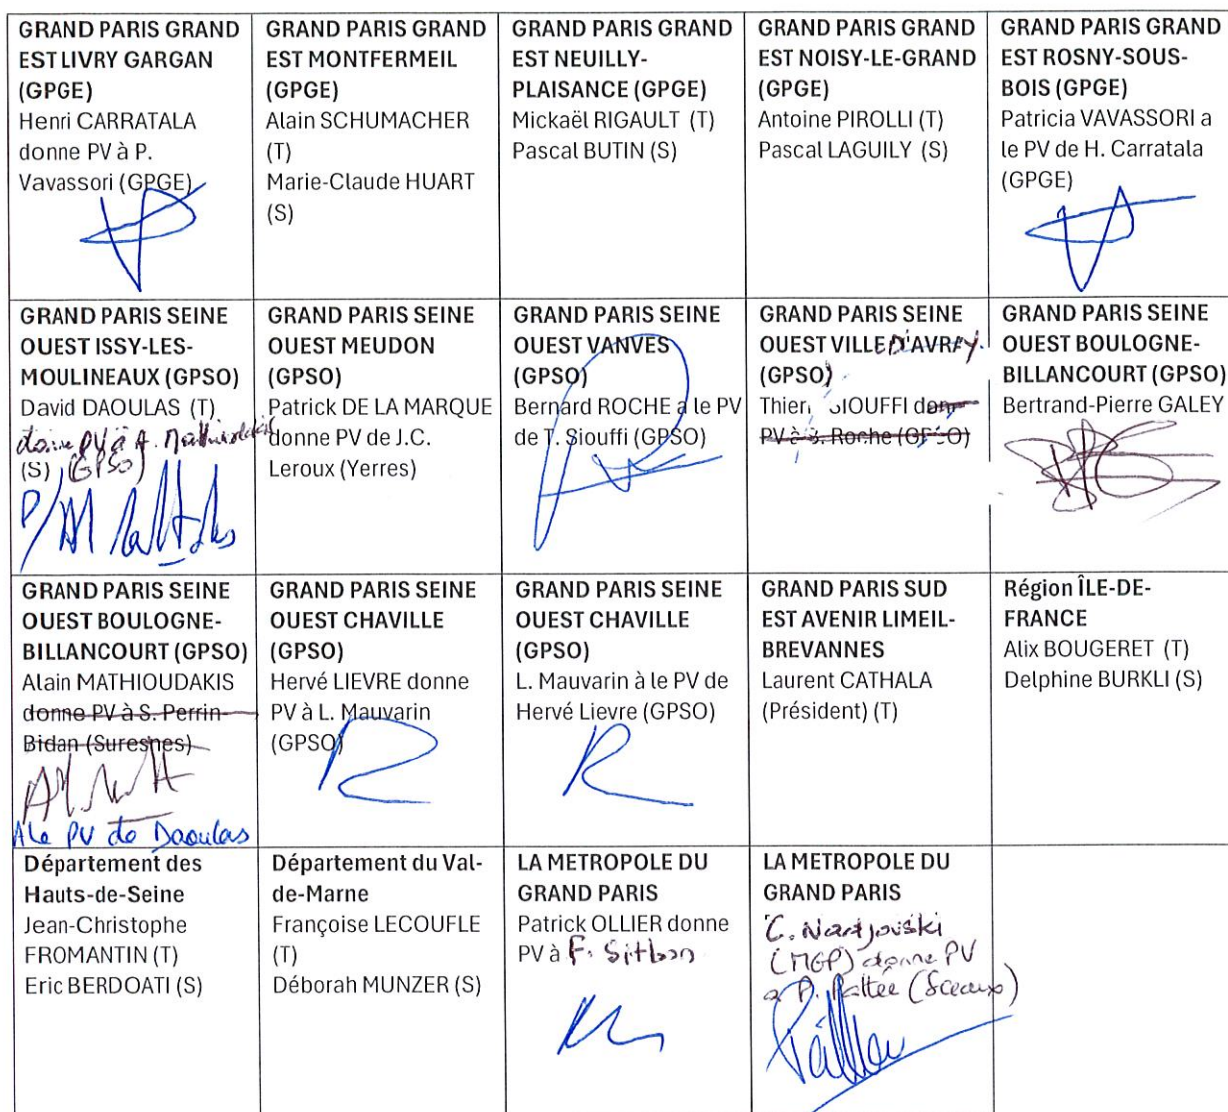 GRAND PARIS GRAND
EST LIVRY GARGAN
(GPGE)
Henri CARRATALA
donne PV à P.
Vavassori (GPGE)
GRAND PARIS GRAND
EST MONTFERMEIL
(GPGE)
Alain SCHUMACHER
(T)
Marie-Claude HUART
(S)
GRAND PARIS GRAND
EST NEUILLY-
PLAISANCE (GPGE)
Mickaël RIGAULT (T)
Pascal BUTIN (S)
GRAND PARIS GRAND
EST NOISY-LE-GRAND
(GPGE)
Antoine PIROLLI (T)
Pascal LAGUILY (S)
GRAND PARIS GRAND
EST ROSNY-SOUS-
BOIS (GPGE)
Patricia VAVASSORI a
le PV de H. Carratala
(GPGE)
GRAND PARIS SEINE
OUEST ISSY-LES-
MOULINEAUX (GPSO)
David DAOULAS (T)
donne PV à A. Mathioudakis
(S) (GPSO)
GRAND PARIS SEINE
OUEST MEUDON
(GPSO)
Patrick DE LA MARQUE
donne PV de J.C.
Leroux (Yerres)
GRAND PARIS SEINE
OUEST VANVES
(GPSO)
Bernard ROCHE a le PV
de T. Siouffi (GPSO)
GRAND PARIS SEINE
OUEST VILLE D'AVRAY
(GPSO)
SIOUFFI donne
PV à B. Roche (GPSO)
GRAND PARIS SEINE
OUEST BOULOGNE-
BILLANCOURT (GPSO)
Bertrand-Pierre GALEY
GRAND PARIS SEINE
OUEST BOULOGNE-
BILLANCOURT (GPSO)
Alain MATHIOUDAKIS
donne PV à S. Perrin-
Bidan (Suresnes)
A le PV de Daoulas
GRAND PARIS SEINE
OUEST CHAVILLE
(GPSO)
Hervé LIEVRE donne
PV à L. Mauvarin
(GPSO)
GRAND PARIS SEINE
OUEST CHAVILLE
(GPSO)
L. Mauvarin à le PV de
Hervé Lievre (GPSO)
GRAND PARIS SUD
EST AVENIR LIMEIL-
BREVANNES
Laurent CATHALA
(Président) (T)
Région ÎLE-DE-
FRANCE
Alix BOUGERET (T)
Delphine BURKLI (S)
Département des
Hauts-de-Seine
Jean-Christophe
FROMANTIN (T)
Eric BERDOATI (S)
Département du Val-
de-Marne
Françoise LECOUFLE
(T)
Déborah MUNZER (S)
LA METROPOLE DU
GRAND PARIS
Patrick OLLIER donne
PV à F. Sitbon
LA METROPOLE DU
GRAND PARIS
C. Nadjovski
(MGP) donne PV
a P. Pattée (Sceaux)